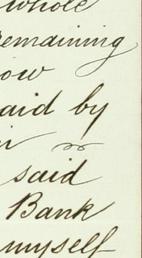 whole
remaining
ow
aid by
in
said
Bank
myself